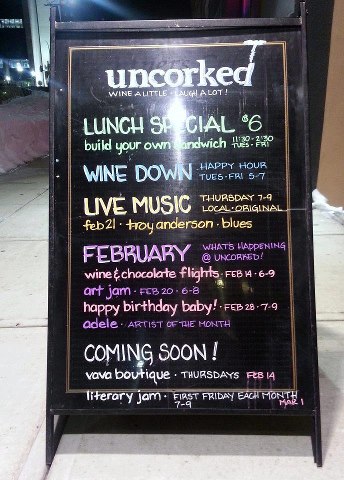 uncorked
WINE A LITTLE · LAUGH A LOT!
LUNCH SPECIAL $6
build your own sandwich 11:30-2:30
TUES-FRI
WINE DOWN HAPPY HOUR
TUES-FRI 5-7
LIVE MUSIC THURSDAY 7-9
LOCAL·ORIGINAL
feb 21 · troy anderson · blues
FEBRUARY WHAT'S HAPPENING
@ UNCORKED!
wine & chocolate flights · FEB 14 · 6-9
art jam · FEB 20 · 6-8
happy birthday baby! · FEB 28 · 7-9
adele · ARTIST OF THE MONTH
COMING SOON!
vava boutique · THURSDAYS FEB 14
literary jam · FIRST FRIDAY EACH MONTH
7-9 MAR 1